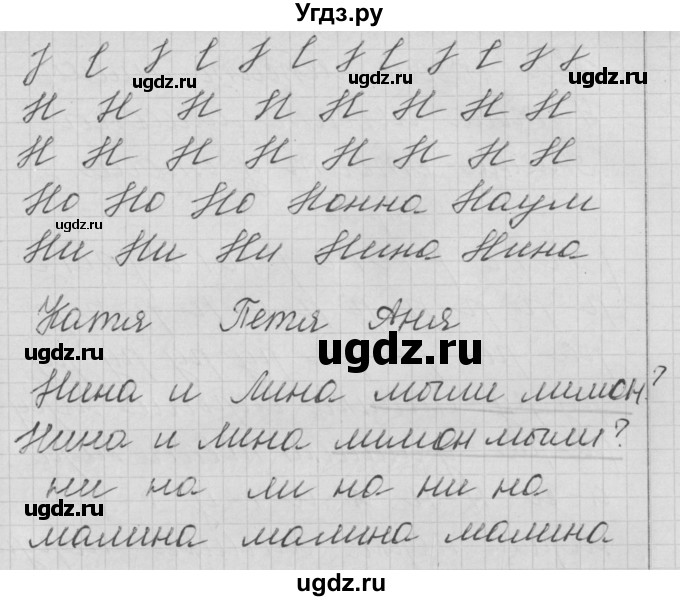 Угдз.ру
Н Н Н Н Н Н Н Н
Н Н Н Н Н Н Н Н
Но Но Но Нонна Наум
Ни Ни Ни Нина Нина
Катя Петя Аня
Нина и Лина мыли лимон?
Нина и Лина лимон мыли?
ни на ли на ни на
малина малина малина
ugdz.ru
ugdz.ru
ugdz.ru
ugdz.ru
ugdz.ru
ugdz.ru
ugdz.ru
ugdz.ru
ugdz.ru